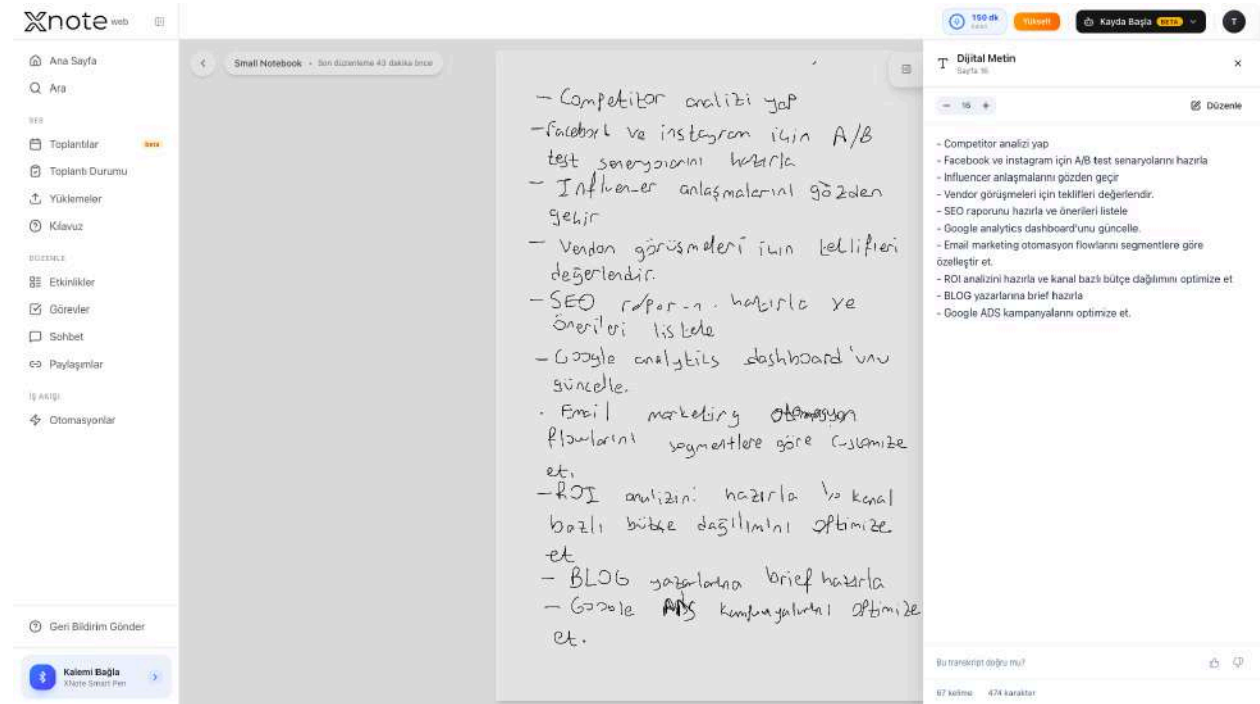 Xnote web
150 dk
Yükselt
Kayda Başla BETA
T
Ana Sayfa
Ara
SES
Toplantılar beta
Toplantı Durumu
Yüklemeler
Kılavuz
DÜZENLE
Etkinlikler
Görevler
Sohbet
Paylaşımlar
İŞ AKIŞI
Otomasyonlar
Geri Bildirim Gönder
Kalemi Bağla
XNote Smart Pen
Small Notebook • Son düzenleme 43 dakika önce
- Competitor analizi yap
- Facebook ve instagram için A/B
test senaryolarını hazırla
- Influencer anlaşmalarını gözden
geçir
- Vendor görüşmeleri için teklifleri
değerlendir.
- SEO raporunu hazırla ve
önerileri listele
- Google analytics dashboard'unu
güncelle.
- Email marketing otomasyon
flowlarını segmentlere göre customize
et.
- ROI analizini hazırla ve kanal
bazlı bütçe dağılımını optimize
et
- BLOG yazarlarına brief hazırla
- Google ADS kampanyalarını optimize
et.
Dijital Metin
Sayfa 16
- 16 +
Düzenle
- Competitor analizi yap
- Facebook ve instagram için A/B test senaryolarını hazırla
- Influencer anlaşmalarını gözden geçir
- Vendor görüşmeleri için teklifleri değerlendir.
- SEO raporunu hazırla ve önerileri listele
- Google analytics dashboard'unu güncelle.
- Email marketing otomasyon flowlarını segmentlere göre
özelleştir et.
- ROI analizini hazırla ve kanal bazlı bütçe dağılımını optimize et
- BLOG yazarlarına brief hazırla
- Google ADS kampanyalarını optimize et.
Bu transkript doğru mu?
67 kelime 474 karakter